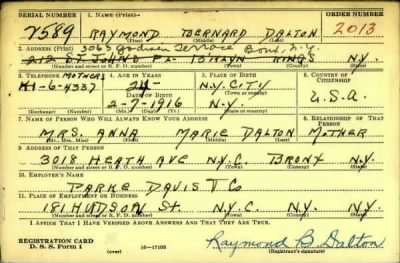 SERIAL NUMBER 1. NAME (Print) ORDER NUMBER
2589 RAYMOND BERNARD DALTON 2013
(First) (Middle) (Last)
2. ADDRESS (Print) 3065 Godwin Terrace Bronx, N.Y.
212 ST. JOHNS PL. BRKLYN KINGS N.Y.
(Number and street or R. F. D. number) (Town) (County) (State)
3. TELEPHONE MOTHERS 4. AGE IN YEARS 5. PLACE OF BIRTH 6. COUNTRY OF CITIZENSHIP
KI-6-4337 24 N.Y. CITY
DATE OF BIRTH (Town or county) U.S.A.
2-7-1916 N.Y.
(Exchange) (Number) (Mo.) (Day) (Yr.) (State or country)
7. NAME OF PERSON WHO WILL ALWAYS KNOW YOUR ADDRESS 8. RELATIONSHIP OF THAT PERSON
MRS. ANNA MARIE DALTON MOTHER
(Mr., Mrs., Miss) (First) (Middle) (Last)
9. ADDRESS OF THAT PERSON
3018 HEATH AVE N.Y.C. BRONX N.Y.
(Number and street or R. F. D. number) (Town) (County) (State)
10. EMPLOYER'S NAME
PARKE DAVIS & CO
11. PLACE OF EMPLOYMENT OR BUSINESS
181 HUDSON St. N.Y.C. N.Y. N.Y.
(Number and street or R. F. D. number) (Town) (County) (State)
I AFFIRM THAT I HAVE VERIFIED ABOVE ANSWERS AND THAT THEY ARE TRUE.
REGISTRATION CARD
D. S. S. Form 1 (over) 16—17105 Raymond B. Dalton
(Registrant's signature)